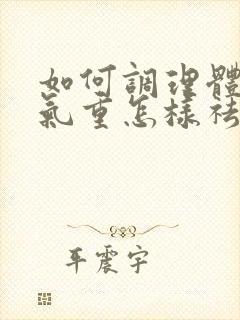 如何調理體
氣重怎樣祛
平震宇